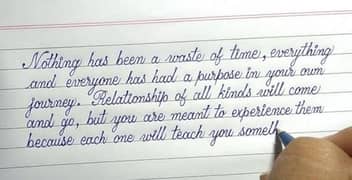 Nothing has been a waste of time, everything
and everyone has had a purpose in your own
journey. Relationship of all kinds will come
and go, but you are meant to experience them
because each one will teach you someth